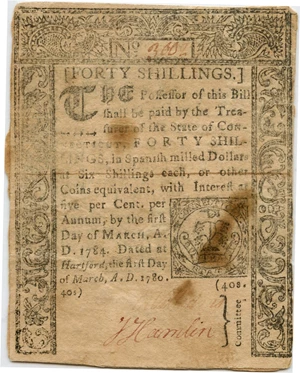 No
[FORTY SHILLINGS.]
THE Possessor of this Bill
shall be paid by the Trea-
surer of the State of Con-
FORTY SHIL-
LINGS, in Spanish milled Dollars
at Six Shillings each, or other
Coins equivalent, with Interest at
five per Cent, per
Annum, by the first
Day of MARCH, A.
D. 1784. Dated at
Hartford, the first Day
of March, A. D. 1780.
40s) (40s.
J Hamlin
} Committee